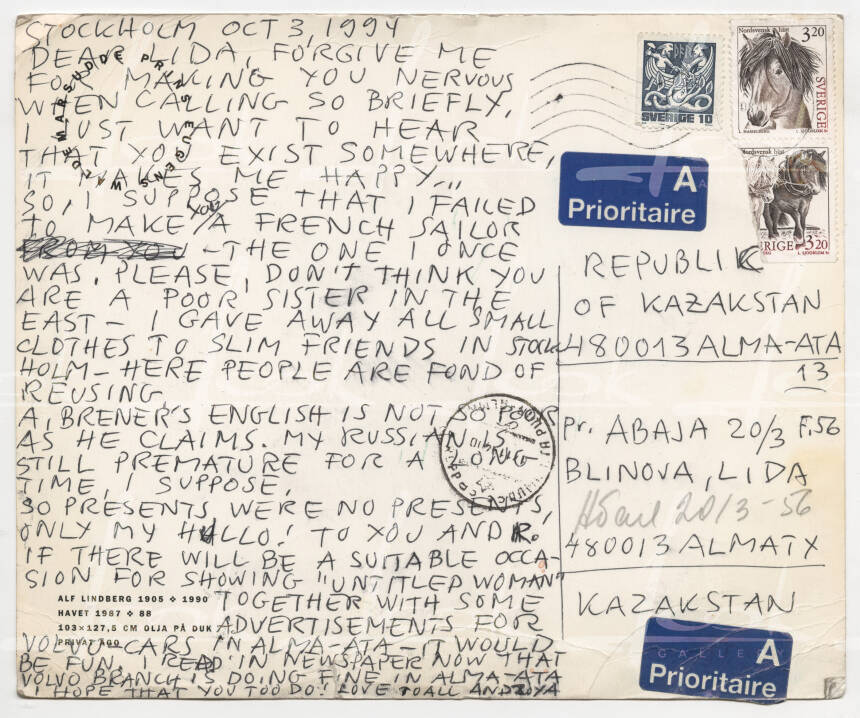 STOCKHOLM OCT 3, 1994
DEAR LIDA, FORGIVE ME
FOR MAKING YOU NERVOUS
WHEN CALLING SO BRIEFLY,
I JUST WANT TO HEAR
THAT YOU EXIST SOMEWHERE,
IT MAKES ME HAPPY...
SO, I SUPPOSE THAT I FAILED
TO MAKE YOU A FRENCH SAILOR
FROM YOU - THE ONE I ONCE
WAS. PLEASE, DON'T THINK YOU
ARE A POOR SISTER IN THE
EAST - I GAVE AWAY ALL SMALL
CLOTHES TO SLIM FRIENDS IN STOCK
HOLM - HERE PEOPLE ARE FOND OF
REUSING
A. BRENER'S ENGLISH IS NOT SO POOR
AS HE CLAIMS. MY RUSSIAN IS
STILL PREMATURE FOR A LONG
TIME, I SUPPOSE.
SO PRESENTS WERE NO PRESENTS,
ONLY MY HULLO! TO YOU AND R.
IF THERE WILL BE A SUITABLE OCCA-
SION FOR SHOWING "UNTITLED WOMAN"
TOGETHER WITH SOME
ADVERTISEMENTS FOR
VOLVO-CARS IN ALMA-ATA - IT WOULD
BE FUN. I READ IN NEWSPAPER NOW THAT
VOLVO BRANCH IS DOING FINE IN ALMA-ATA
I HOPE THAT YOU TOO DO! LOVE TO ALL AND ZOYA
ALF LINDBERG 1905 ❖ 1990
HAVET 1987 ❖ 88
103×127,5 CM OLJA PÅ DUK
PRIVAT ÄGO
PRINS EUGENS WALDEMARSUDDE
SVERIGE 10
Nordsvensk häst
3.20
SVERIGE
Nordsvensk häst
SVERIGE
3.20
A
Prioritaire
REPUBLIK
OF KAZAKSTAN
480013 ALMA-ATA
13
Pr. ABAJA 20/3 F.56
BLINOVA, LIDA
Абая 20/3-56
480013 ALMATY
KAZAKSTAN
A
Prioritaire
GALLERY